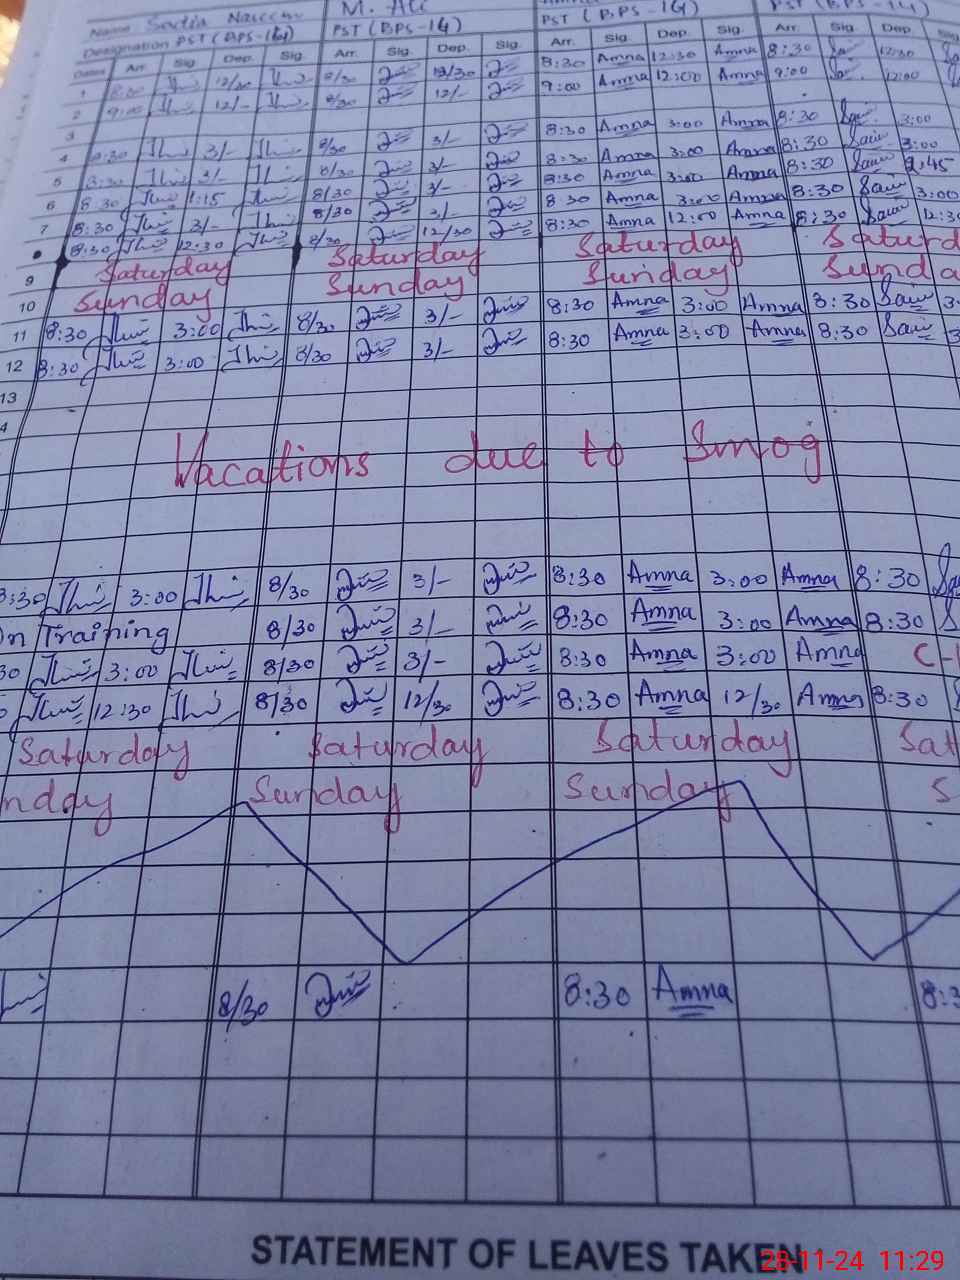 Name Sadia Naseem M. Ali
Designation PST (BPS-14) PST (BPS-14) PST (BPS-14) PST (BPS-14)
Dates Arr. Sig. Dep. Sig. Arr. Sig. Dep. Sig. Arr. Sig. Dep. Sig. Arr. Sig. Dep. Sig.
1 8:30 12/30 8/30 12/30 8:30 Amna 12:30 Amna 8:30 12:30
2 9:00 12/- 8/30 12/- 9:00 Amna 12:00 Amna 9:00 12:00
3
4 8:30 3/- 8/30 3/- 8:30 Amna 3:00 Amna 8:30 3:00
5 8:30 3/- 8/30 3/- 8:30 Amna 3:00 Amna 8:30 3:00
6 8:30 1:15 8/30 3/- 8:30 Amna 3:00 Amna 8:30 2:45
7 8:30 3/- 8/30 3/- 8:30 Amna 3:00 Amna 8:30 3:00
8:30 12:30 8/30 12/30 8:30 Amna 12:00 Amna 8:30 12:3
9 Saturday Saturday Saturday Saturd
10 Sunday Sunday Sunday Sunda
11 8:30 3:00 8/30 3/- 8:30 Amna 3:00 Amna 8:30 3
12 8:30 3:00 8/30 3/- 8:30 Amna 3:00 Amna 8:30 3
13
4
Vacations due to Smog
8:30 3:00 8/30 3/- 8:30 Amna 3:00 Amna 8:30
On Training 8/30 3/- 8:30 Amna 3:00 Amna 8:30
30 3:00 8/30 3/- 8:30 Amna 3:00 Amna C-
12:30 8/30 12/30 8:30 Amna 12/30 Amna 8:30
Saturday Saturday Saturday Sat
nday Sunday Sunday S
8/30 8:30 Amna 8:3
STATEMENT OF LEAVES TAKEN
28-11-24 11:29